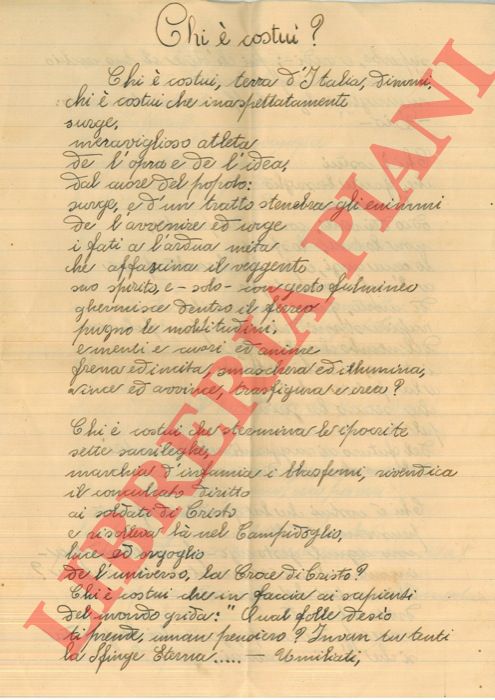 Chi è costui?
Chi è costui, terra d'Italia, dimmi,
chi è costui che inaspettatamente
surge,
meraviglioso atleta
de l'opra e de l'idea,
dal cuore del popolo:
surge, e d'un tratto stenebra gli enimmi
de l'avvenire ed urge
i fati a l'ardua meta
che affascina il veggente
suo spirito, e - solo - con gesto fulmineo
ghermisce dentro il ferreo
pugno le moltitudini,
e menti e cuori ed anime
frena ed incita, smaschera ed illumina,
vince ed avvince, trasfigura e crea?
Chi è costui che stermina le ipocrite
sette sacrileghe,
marchia d'infamia i blasfemi, rivendica
il conculcato diritto
ai soldati di Cristo
e risolleva là nel Campidoglio,
luce ed orgoglio
de l'universo, la Croce di Cristo?
Chi è costui che in faccia ai sapienti
del mondo grida: "Qual folle desio
ti prende, uman pensiero? Invan tu tenti
la Sfinge Eterna..... - Umiliati,
LIBRERIA PIANI